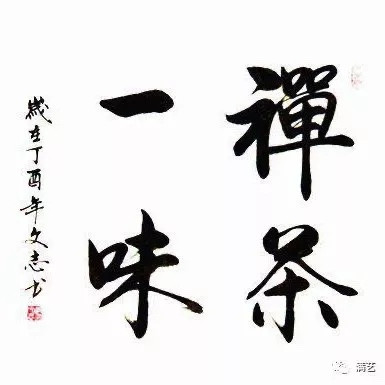 禪茶
一味
歲在丁酉年文志书
满艺